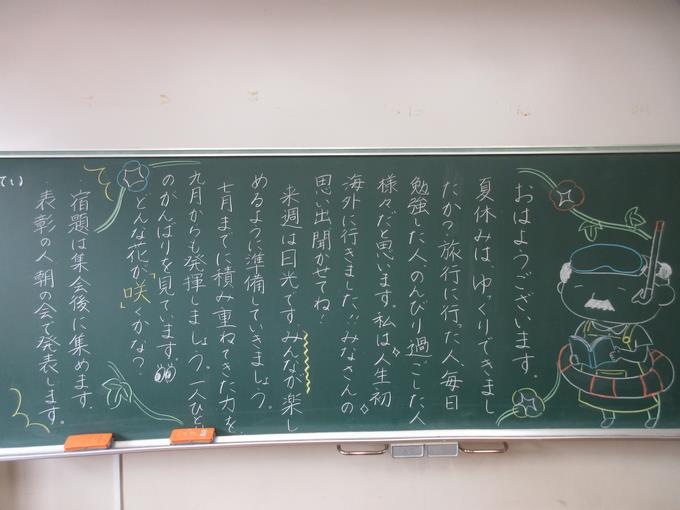 おはようございます。
夏休みは、ゆっくりできまし
たか?旅行に行った人、毎日
勉強した人、のんびり過ごした人
様々だと思います。私は人生初
海外に行きました!!みなさんの
思い出聞かせてね!
来週は日光です。みんなが楽し
めるように準備していきましょう。
七月までに積み重ねてきた力を、
九月からも発揮しましょう。一人ひとり
のがんばりを見ています。
どんな花が「咲」くかな?
宿題は集会後に集めます。
表彰の人朝の会で発表します。